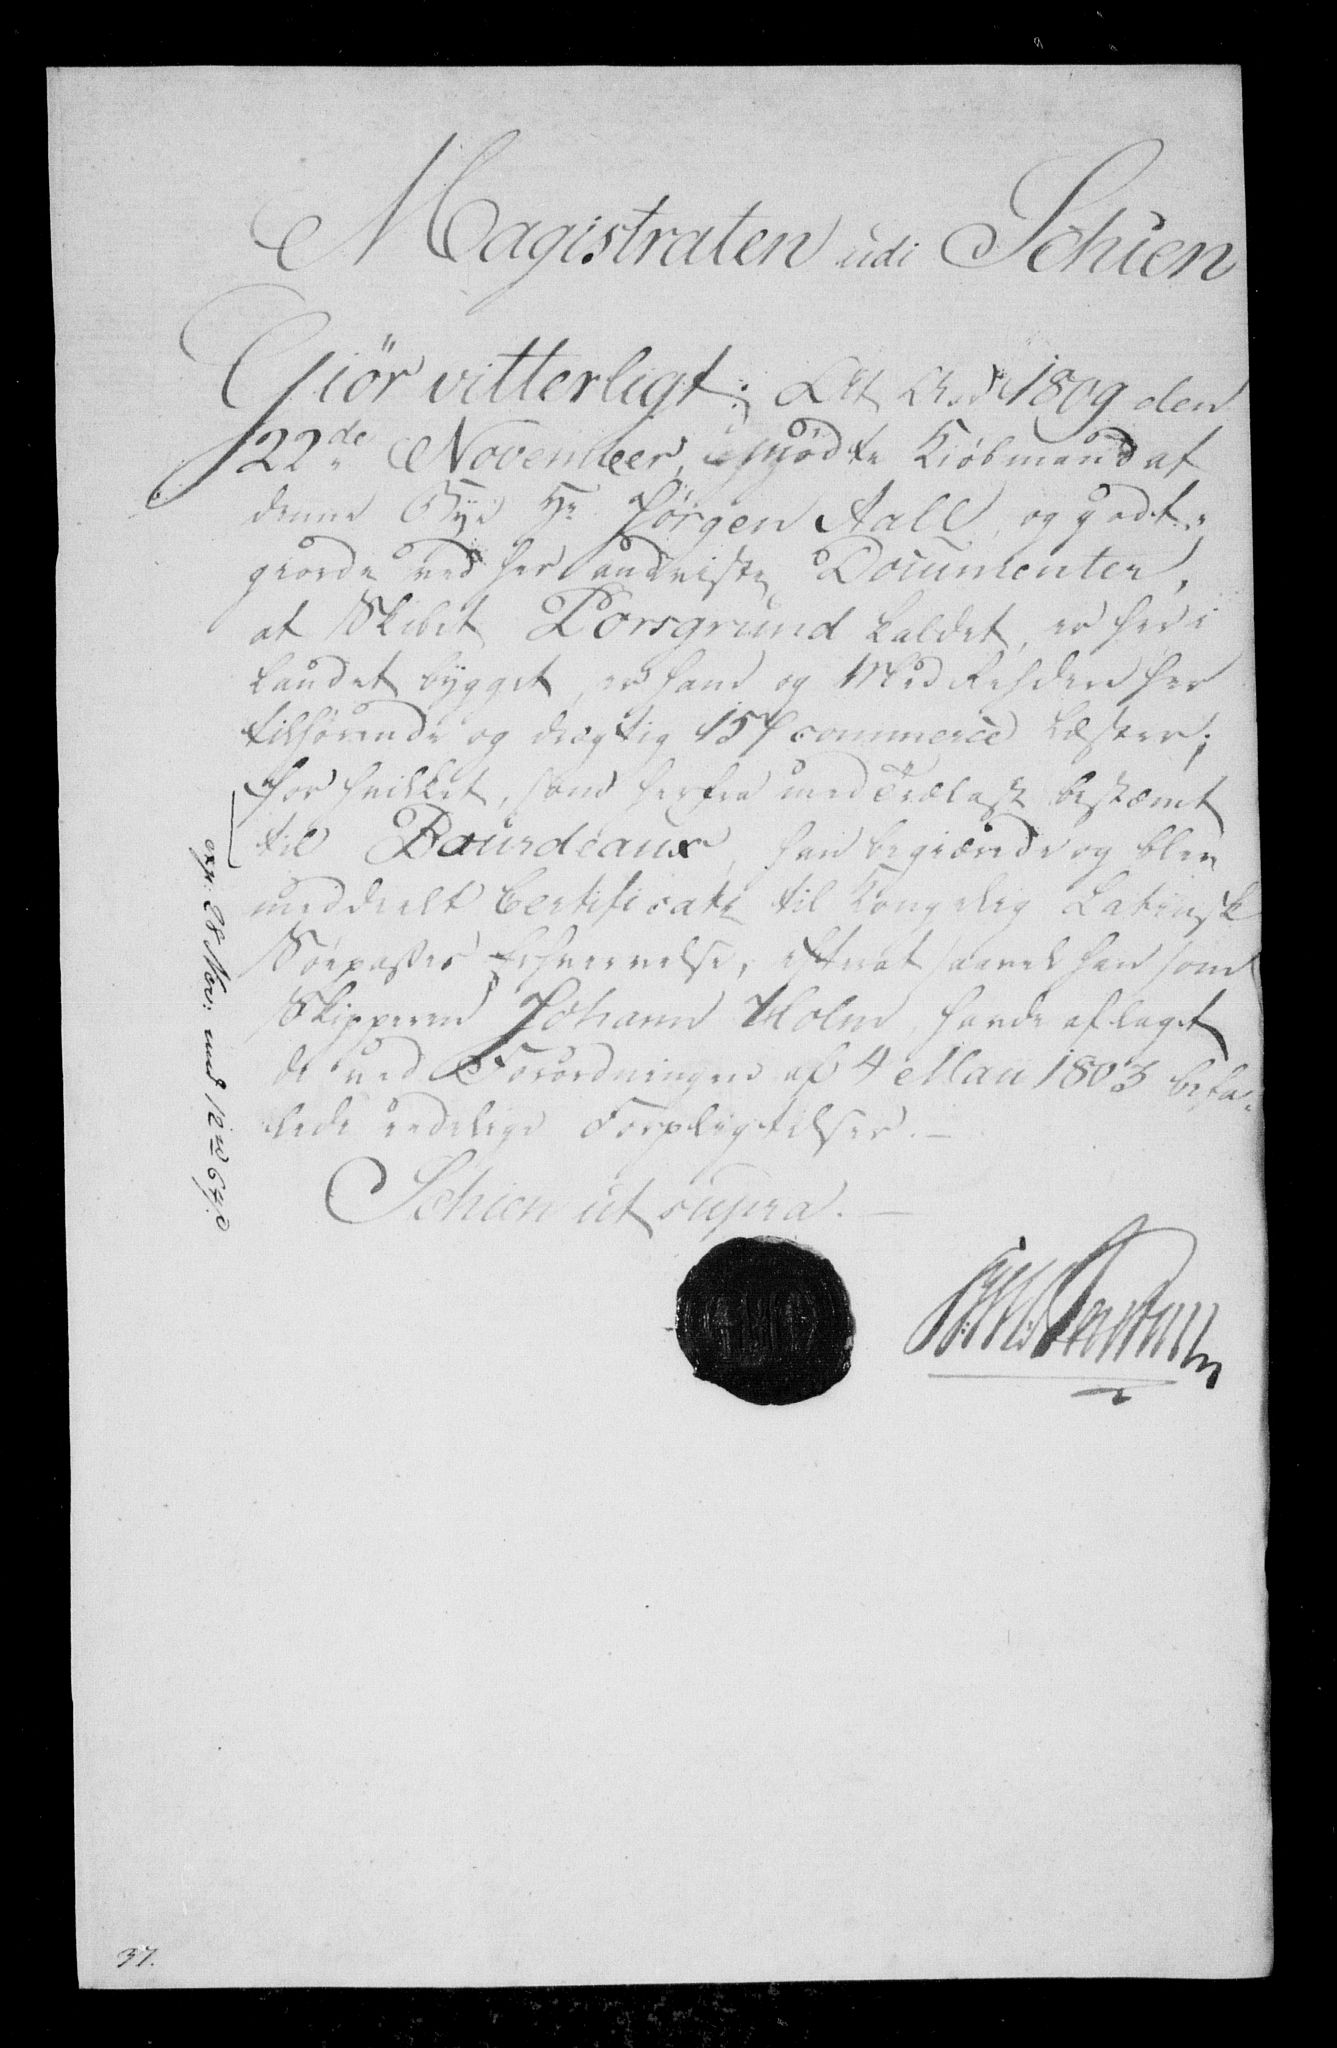 Magistraten udi Schien
Giör vitterligt: At Aar 1809 den
22de November, mødte Kiøbmand af
denne Bye Hr Jørgen Aall, og godt-
giorde ved her andviste Documenter,
at Skibet Porsgrund kaldet, er her i
Landet bygget, er ham og Med Rehdere her
tilhørende og drægtig 157 commerce Læster;
for hvilket, som herfra med Trælast bestæmt
til Bourdeaux, han begiærede og blev
meddeelt Certificati til Kongelig Latinsk
Söepasses Erhvervelse, efterat saavel han som
Skipperen Johann Holm havde aflagt
de ved Forordningen af 4 Maii 1803 befa-
lede eedelige Forpligtelser.
Schien ut supra.
exp: 28 Nov: med No 647.
37.